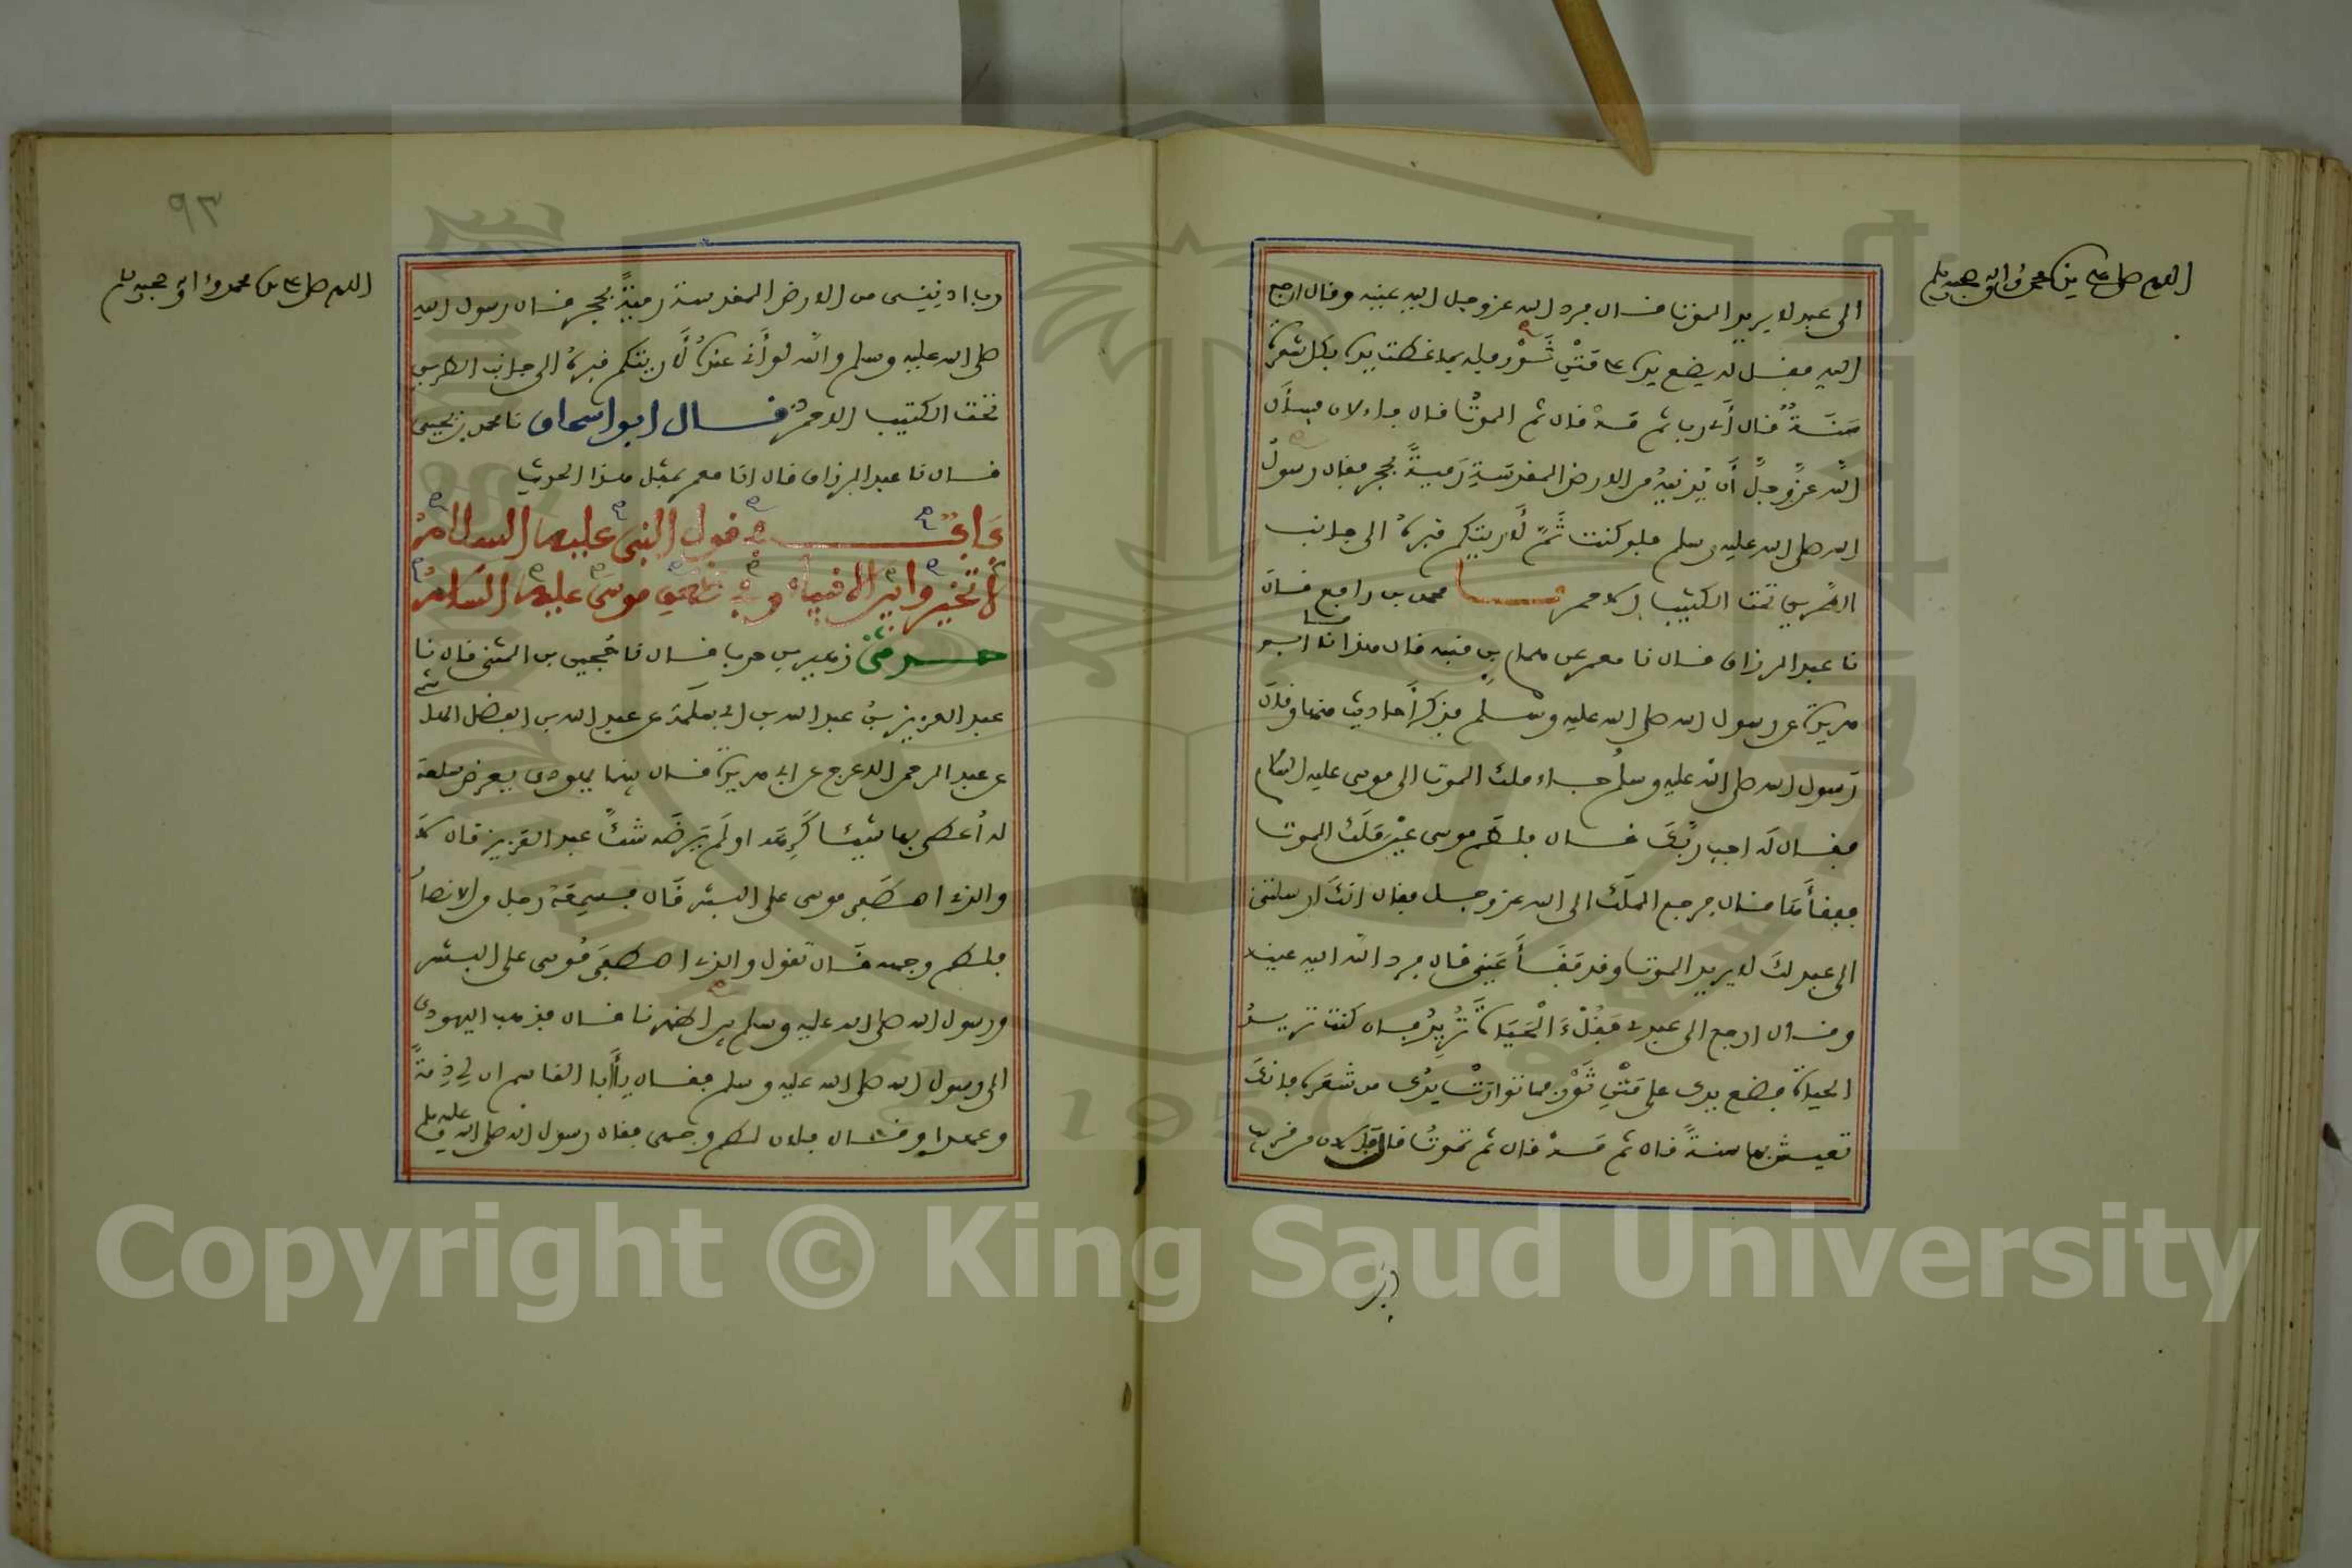 اللهم صل على سيدنا محمد وآله وصحبه وسلم
الى عبد لا يريد الموت قال فرد الله عز وجل اليه عينه وقال ارجع
اليه فقل له يضع يده على متن ثور فله بما غطت يده بكل شعرة
سنة قال أي رب ثم مه قال ثم الموت قال فالان فسأل
الله عز وجل أن يدنيه من الارض المقدسة رمية بحجر فقال رسول
الله صلى الله عليه وسلم فلو كنت ثم لأريتكم قبره الى جانب
الطريق تحت الكثيب الاحمر نا محمد بن رافع قال
نا عبد الرزاق قال نا معمر عن همام بن منبه قال هذا ما نا ابو
هريرة عن رسول الله صلى الله عليه وسلم فذكر أحاديث منها وقال
رسول الله صلى الله عليه وسلم جاء ملك الموت الى موسى عليه السلام
فقال له اجب ربك قال فلطم موسى عين ملك الموت
ففقأها قال فرجع الملك الى الله عز وجل فقال انك ارسلتني
الى عبد لك لا يريد الموت وقد فقأ عيني قال فرد الله اليه عينه
وقال ارجع الى عبدي فقل ءالحياة تريد فان كنت تريد
الحياة فضع يدك على متن ثور فما توارت يدك من شعرة فانك
تعيش بها سنة قال ثم مه قال ثم تموت قال فالان من قريب
رب
٩٣
اللهم صل على سيدنا محمد وآله وصحبه وسلم
رب ادنيني من الارض المقدسة رمية بحجر قال رسول الله
صلى الله عليه وسلم والله لو أني عنده لأريتكم قبره الى جانب الطريق
تحت الكثيب الاحمر قال ابو اسحاق نا محمد بن يحيى
قال نا عبد الرزاق قال انا معمر بمثل هذا الحديث
باب في قول النبي عليه السلام
لا تخيروا بين الانبياء وفي موسى عليه السلام
حدثني زهير بن حرب قال نا حجين بن المثنى قال نا
عبد العزيز بن عبد الله بن ابي سلمة عن عبد الله بن الفضل الهاشمي
عن عبد الرحمن الاعرج عن ابي هريرة قال بينما يهودي يعرض سلعة
له أعطي بها شيئا كرهه او لم يرضه شك عبد العزيز قال لا
والذي اصطفى موسى على البشر قال فسمعه رجل من الانصار
فلطم وجهه قال تقول والذي اصطفى موسى على البشر
ورسول الله صلى الله عليه وسلم بين اظهرنا قال فذهب اليهودي
الى رسول الله صلى الله عليه وسلم فقال يا أبا القاسم ان لي ذمة
وعهدا وقال فلان لطم وجهي فقال رسول الله صلى الله عليه وسلم
Copyright © King Saud University
1957